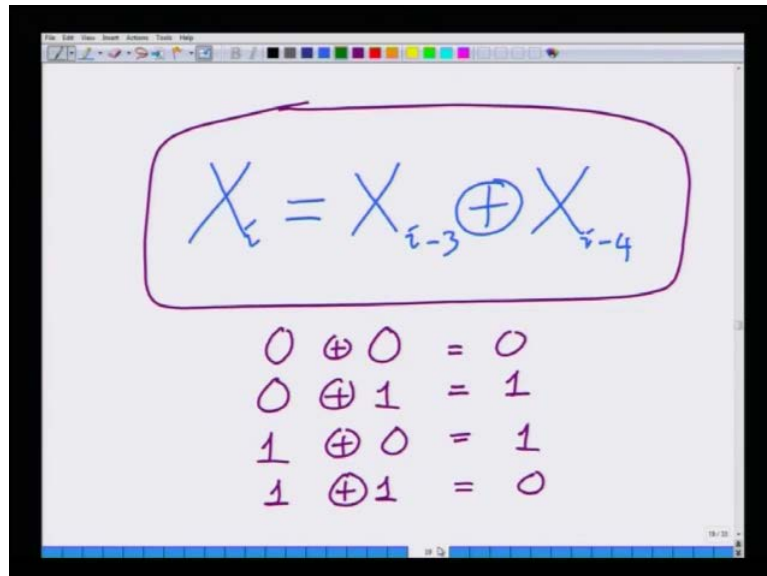 File Edit View Insert Actions Tools Help
B I
Xᵢ = Xᵢ₋₃ ⊕ Xᵢ₋₄
0 ⊕ 0 = 0
0 ⊕ 1 = 1
1 ⊕ 0 = 1
1 ⊕ 1 = 0